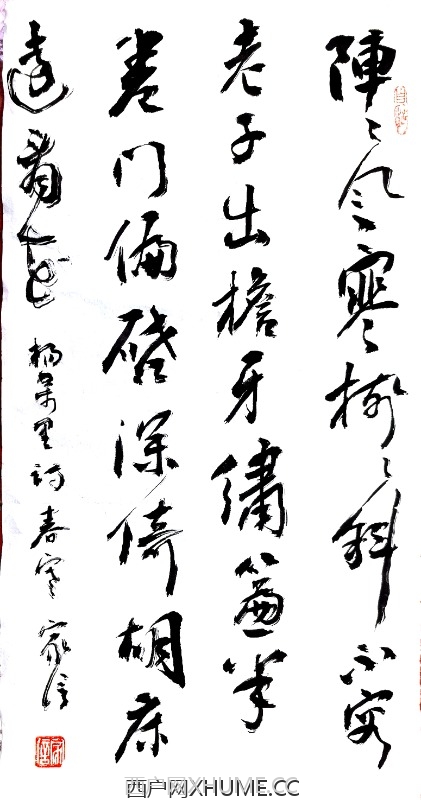 陣〻風寒〻斜不容
老子出檐牙繡簾半
卷門偏啓深倚胡床
遠看花
楊萬里詩春寒 家信
西户网XHUME.CC